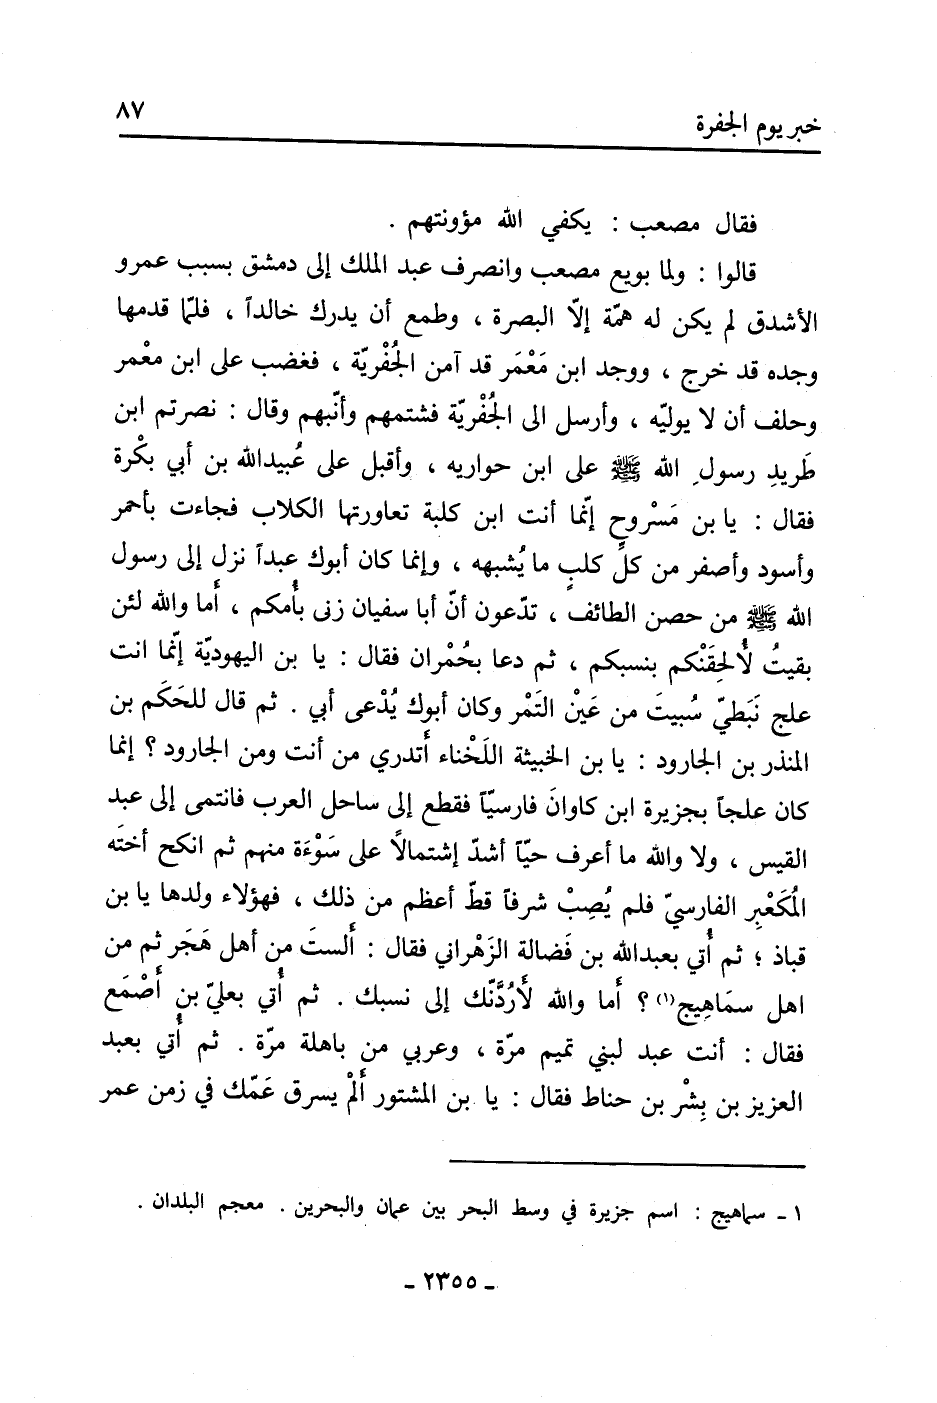 خبر يوم الجفرة
٨٧
فقال مصعب : يكفي الله مؤونتهم .
قالوا : ولما بويع مصعب وانصرف عبد الملك إلى دمشق بسبب عمرو
الأشدق لم يكن له همّة إلاّ البصرة ، وطمع أن يدرك خالداً ، فلمّا قدمها
وجده قد خرج ، ووجد ابن مَعْمَر قد آمن الجُفْريّة ، فغضب على ابن معْمر
وحلف أن لا يوليّه ، وأرسل الى الجُفْريّة فشتمهم وأنّبهم وقال : نصرتم ابن
طَريدِ رسولِ الله ﷺ على ابن حواريه ، وأقبل على عُبيدالله بن أبي بكْرة
فقال : يا بن مَسْروحٍ إنّما أنت ابن كلبة تعاورتها الكلاب فجاءت بأحمر
وأسود وأصفر من كلّ كلبٍ ما يُشبهه ، وإنما كان أبوك عبداً نزل إلى رسول
الله ﷺ من حصن الطائف ، تدّعون أنّ أبا سفيان زنى بأُمكم ، أَما والله لئن
بقيتُ لأُلحِقَنْكم بنسبكم ، ثم دعا بحُمْران فقال : يا بن اليهوديّة إنّما انت
علج نَبَطيّ سُبيتَ من عَيْن التَمْر وكان أبوك يُدْعى أبي . ثم قال للحَكَم بن
المنذر بن الجارود : يا بن الخبيثة اللَخْناء أَتدري من أنت ومن الجارود ؟ إنما
كان علجاً بجزيرة ابن كاوانَ فارسيّاً فقطع إلى ساحل العرب فانتمى إلى عبد
القيس ، ولا والله ما أعرف حيّاً أشدّ إشتمالاً على سَوْءَة منهم ثم انكح أختَه
المُكَعْبِر الفارسيّ فلم يُصِبْ شرفاً قطّ أعظم من ذلك ، فهؤلاء ولدها يا بن
قباذ ؛ ثم أُتي بعبدالله بن فَضالة الزَهْراني فقال : أَلستَ من أهل هَجَر ثم من
اهل سمَاهِيج(١) ؟ أَما والله لأَرُدَّنّك إلى نسبك . ثم أُتي بعليّ بن أَصْمَع
فقال : أنت عبد لبني تميم مرّة ، وعربي من باهلة مرّة . ثم أُتي بعبد
العزيز بن بِشْر بن حناط فقال : يا بن المشتور أَلمْ يسرق عَمّك في زمن عمر
١ ـ سماهيج : اسم جزيرة في وسط البحر بين عمان والبحرين . معجم البلدان .
ـ ٢٣٥٥ ـ